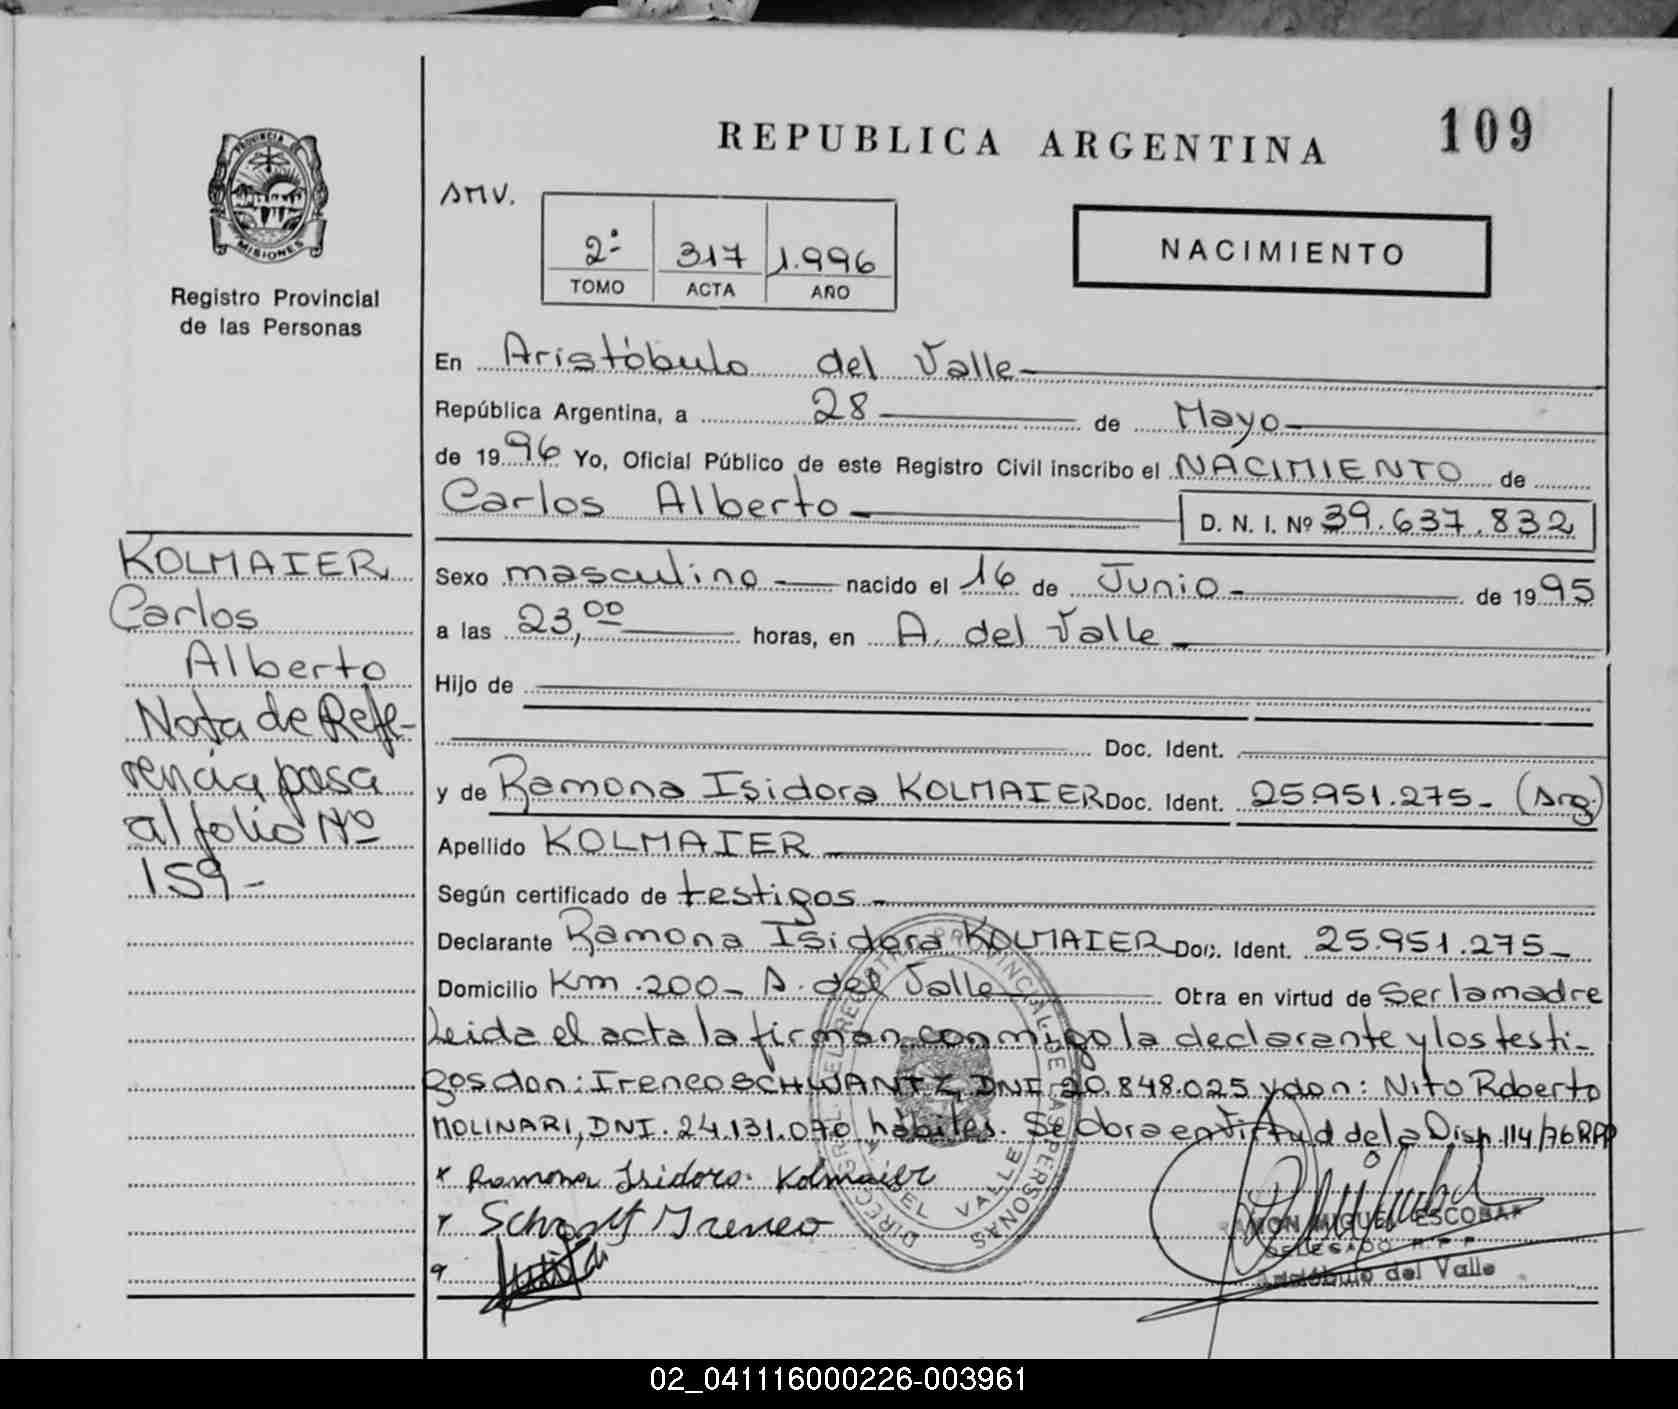 REPUBLICA ARGENTINA
109
PROVINCIA DE
MISIONES
Registro Provincial
de las Personas
AMV.
2º 317 1.996
TOMO ACTA AÑO
NACIMIENTO
En Aristóbulo del Valle
República Argentina, a 28 de Mayo
de 1996 Yo, Oficial Público de este Registro Civil inscribo el NACIMIENTO de
Carlos Alberto D. N. I. Nº 39.637.832
Sexo masculino nacido el 16 de Junio de 1995
a las 23,00 horas, en A. del Valle
Hijo de
Doc. Ident.
y de Ramona Isidora KOLMAIER Doc. Ident. 25951.275- (Arg)
Apellido KOLMAIER
Según certificado de testigos
Declarante Ramona Isidora KOLMAIER Doc. Ident. 25.951.275-
Domicilio Km.200- A. del Valle Otra en virtud de Ser la madre
Leida el acta la firman conmigo la declarante y los testi-
gos don: Ireneo SCHWANTZ, DNI 20.848.025 y don: Nito Roberto
MOLINARI, DNI. 24.131.070 hábiles. Se obra en virtud de la Disp. 114/76 RPP
x Ramona Isidora Kolmaier
Ireneo
KOLMAIER
Carlos
Alberto
Nota de Refe-
rencia pasa
al folio Nº
159-
DIREC. GRAL. DEL REGISTRO PROVINCIAL DE LAS PERSONAS
A. DEL VALLE
RAMON MIGUEL ESCOBAR
DELEGADO R.P.P.
Aristóbulo del Valle
02_041116000226-003961